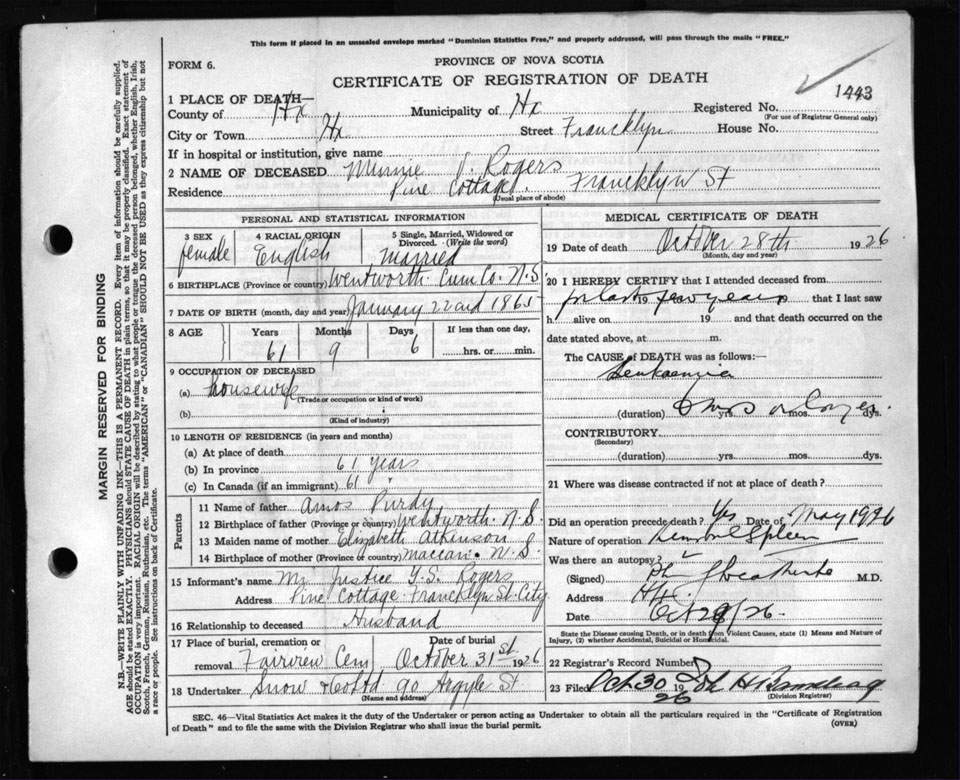 This form if placed in an unsealed envelope marked "Dominion Statistics Free," and properly addressed, will pass through the mails "FREE."
FORM 6.
PROVINCE OF NOVA SCOTIA
CERTIFICATE OF REGISTRATION OF DEATH
1443
1 PLACE OF DEATH—
County of Hx Municipality of Hx Registered No.
(For use of Registrar General only)
City or Town Hx Street Francklyn House No.
If in hospital or institution, give name
2 NAME OF DECEASED Minnie J. Rogers
Residence Pine Cottage. Francklyn St
(Usual place of abode)
PERSONAL AND STATISTICAL INFORMATION
3 SEX 4 RACIAL ORIGIN 5 Single, Married, Widowed or Divorced. (Write the word)
female English Married
6 BIRTHPLACE (Province or country) Wentworth Cum Co. N.S.
7 DATE OF BIRTH (month, day and year) January 22nd 1865
8 AGE Years Months Days If less than one day,
61 9 6 hrs. or min.
9 OCCUPATION OF DECEASED
(a) housewife
(Trade or occupation or kind of work)
(b)
(Kind of industry)
10 LENGTH OF RESIDENCE (in years and months)
(a) At place of death
(b) In province 61 years
(c) In Canada (if an immigrant) 61
Parents
11 Name of father Amos Purdy
12 Birthplace of father (Province or country) Wentworth. N.S.
13 Maiden name of mother Elizabeth Atkinson
14 Birthplace of mother (Province or country) Maccan. N.S.
15 Informant's name Mr Justice T.S. Rogers
Address Pine Cottage Francklyn St. City
16 Relationship to deceased Husband
17 Place of burial, cremation or removal Fairview Cem Date of burial October 31st 1926
18 Undertaker Snow & Co Ltd 90 Argyle St
(Name and address)
MEDICAL CERTIFICATE OF DEATH
19 Date of death October 28th 1926
(Month, day and year)
20 I HEREBY CERTIFY that I attended deceased from
for last 19 few years that I last saw
h alive on 19 and that death occurred on the
date stated above, at m.
The CAUSE of DEATH was as follows:—
Leukaemia
(duration) yrs. mos. dys.
CONTRIBUTORY
(Secondary)
(duration) yrs. mos. dys.
21 Where was disease contracted if not at place of death?
Did an operation precede death? Yes Date of May 1926
Nature of operation Spleen
Was there an autopsy?
(Signed) M.D.
Address Hx.
Date Oct 29/26.
State the Disease causing Death, or in death from Violent Causes, state (1) Means and Nature of Injury, (2) whether Accidental, Suicidal or Homicidal.
22 Registrar's Record Number
23 Filed Oct 30 1926
(Division Registrar)
SEC. 46—Vital Statistics Act makes it the duty of the Undertaker or person acting as Undertaker to obtain all the particulars required in the "Certificate of Registration
of Death" and to file the same with the Division Registrar who shall issue the burial permit.
(OVER)
MARGIN RESERVED FOR BINDING
N.B.—WRITE PLAINLY WITH UNFADING INK—THIS IS A PERMANENT RECORD. Every item of information should be carefully supplied.
AGE should be stated EXACTLY. PHYSICIANS should STATE CAUSE OF DEATH in plain terms, so that it may be properly classified. Exact statement of
OCCUPATION is very important. RACIAL ORIGIN will be described by stating to what people or tongue the deceased person belonged, whether English, Irish,
Scotch, French, German, Russian, Ruthenian, etc. The terms "AMERICAN" or "CANADIAN" SHOULD NOT BE USED as they express citizenship but not
a race or people. See instructions on back of Certificate.